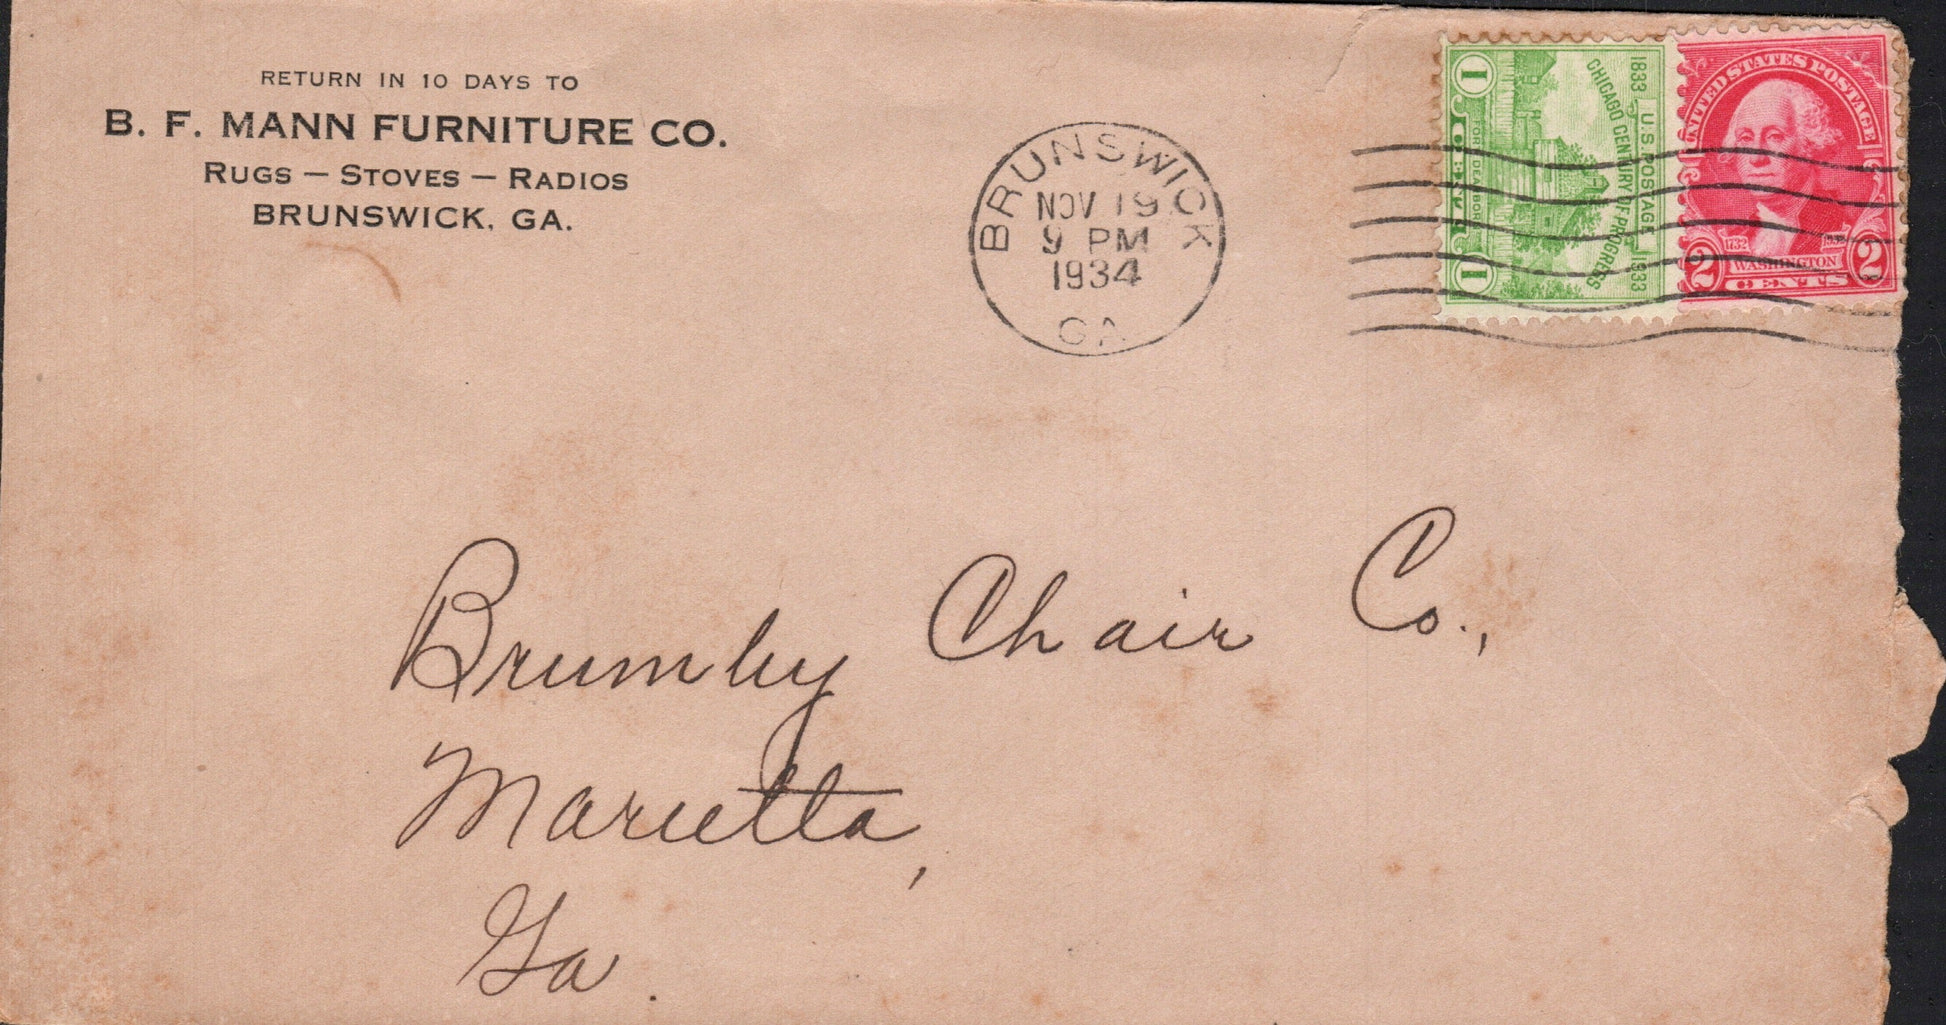 RETURN IN 10 DAYS TO
B. F. MANN FURNITURE CO.
RUGS — STOVES — RADIOS
BRUNSWICK, GA.
BRUNSWICK
NOV 19
9 PM
1934
GA
1833 U.S. POSTAGE 1933
CHICAGO CENTURY OF PROGRESS
FORT DEARBORN
1 CENT 1
UNITED STATES POSTAGE
1732 1932
WASHINGTON
2 CENTS 2
Brumby Chair Co.,
Marietta,
Ga.